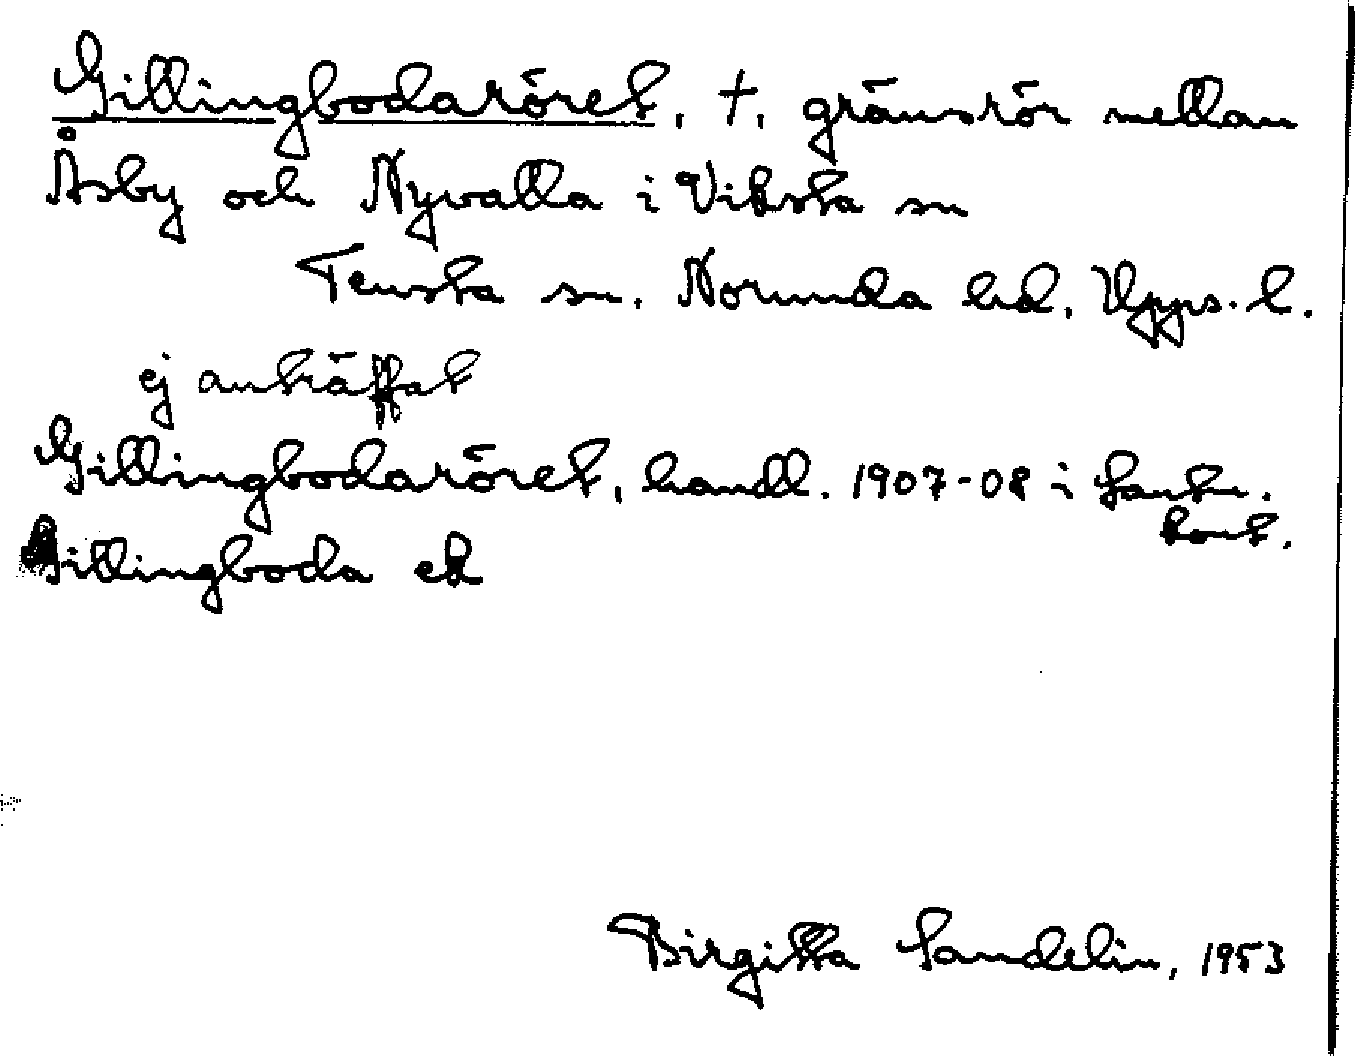 Gillingbodaröret, †, gränsrör mellan
Åsby och Nyvalla i Viksta sn
Tensta sn. Norunda hd. Upps. l.
ej anträffat
Gillingbodaröret, handl. 1907-08 i Lantm.
kont.
Gillingboda ek
Birgitta Sandelin, 1953